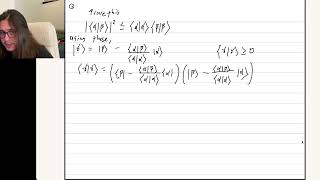 prove this
|⟨α|β⟩|² ≤ ⟨α|α⟩⟨β|β⟩
using these,
|γ⟩ = |β⟩ − ⟨α|β⟩/⟨α|α⟩ |α⟩ ⟨γ|γ⟩ ≥ 0
⟨γ|γ⟩ = (⟨β| − ⟨α|β⟩/⟨α|α⟩ ⟨α|) (|β⟩ − ⟨α|β⟩/⟨α|α⟩ |α⟩)